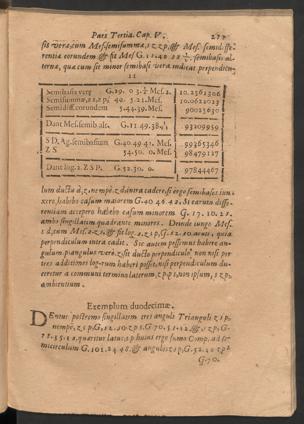 Pars Tertia. Cap. V. 277
sit vera, cum Mes. semisumma, s z z p, & Mes. semidiffe-
rentia eorundem & fit Mes G. 11. 49. semibasis al-
ternæ, qua cum sit minor semibasi vera indicat perpendicu-
11
Semibasis veræ G.29. 0 3. ½ Mes. 2. 10.2562306
Semisummæ, s z, z p, 49. 5.21. Mes. 10.0622023
Semidiff. eorundem 5.44.39. Mes. 90025630
Dant Mes. semib. alt. G.11.49. 93209959
S D, Ag. semibasium G.40.49.41. Mes. 99365346
Z S. 54.50. 0. Mes. 98479127
Dant log. 2. Z S P. G.52.30. 0. 97844467
lum ductū à, z, nempè, z d intra cadere, si ergo semibases iun-
xero, habebo casum maiorem G. 40 46.42. Si earum diffe-
rentiam accepero habebo casum minorem G. 17. 10. 21.
ambo singillatim quadrante minores. Deinde iungo Mes.
s d, cum Mes. z s, & fit log. z s p, G. 52. 30. acuti, quia
perpendiculum intra cadit. Sic autem possemus habere an-
gulum, p angulus verò, z, sit ducto perpendiculo non possi per
tres additiones log-rum haberi posse, nisi perpendiculum du-
ceretur a communi termino laterum, z p, p s, non ipsum, s z p,
ambientium.
Exemplum duodecimæ.
DEntur postremo singillatim tres anguli Trianguli z s p,
nempè, z s p, G. 52. 30. z p s G. 70. 51. 12. & s z p, G.
quæritur latus, s p huius ergo sumo Comp. ad se-
micirculum G. 101. 24. 48. & angulis z s p, G. 52. 30
G. 70.